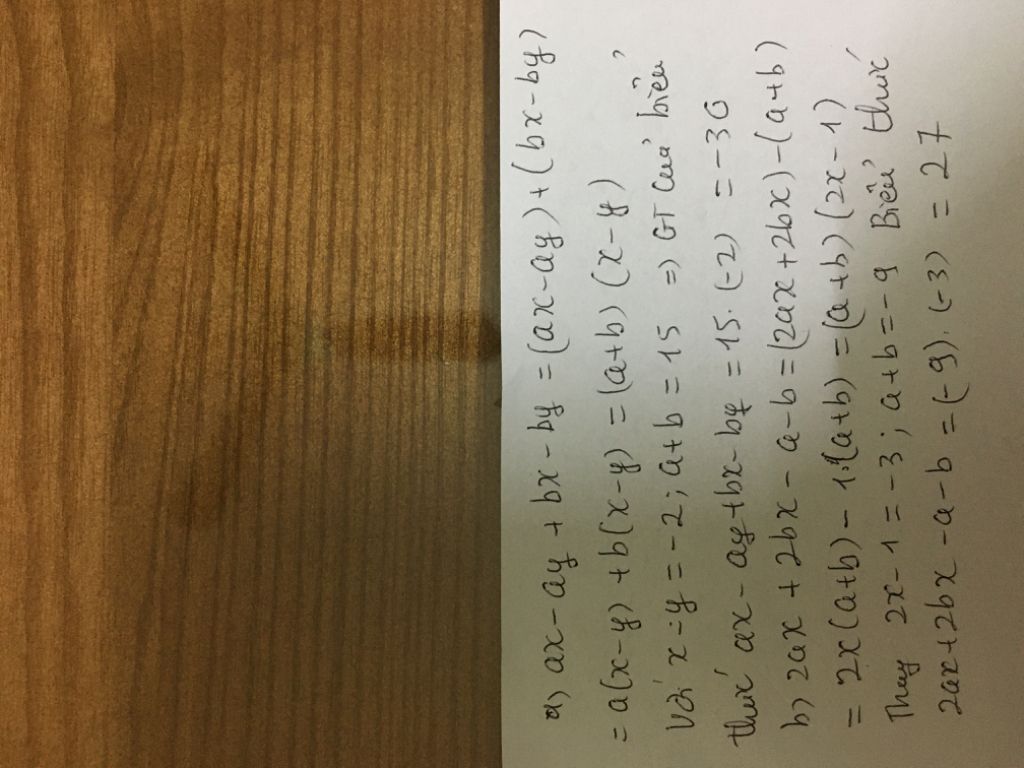 a) ax - ay + bx - by = (ax - ay) + (bx - by)
= a(x - y) + b(x - y) = (a+b) (x - y)
Với x - y = -2; a+b = 15 => GT của biểu
thức ax - ay + bx - by = 15. (-2) = -30
b) 2ax + 2bx - a - b = (2ax + 2bx) - (a+b)
= 2x(a+b) - 1.(a+b) = (a+b) (2x - 1)
Thay 2x - 1 = -3; a+b = -9 Biểu thức
2ax + 2bx - a - b = (-9). (-3) = 27